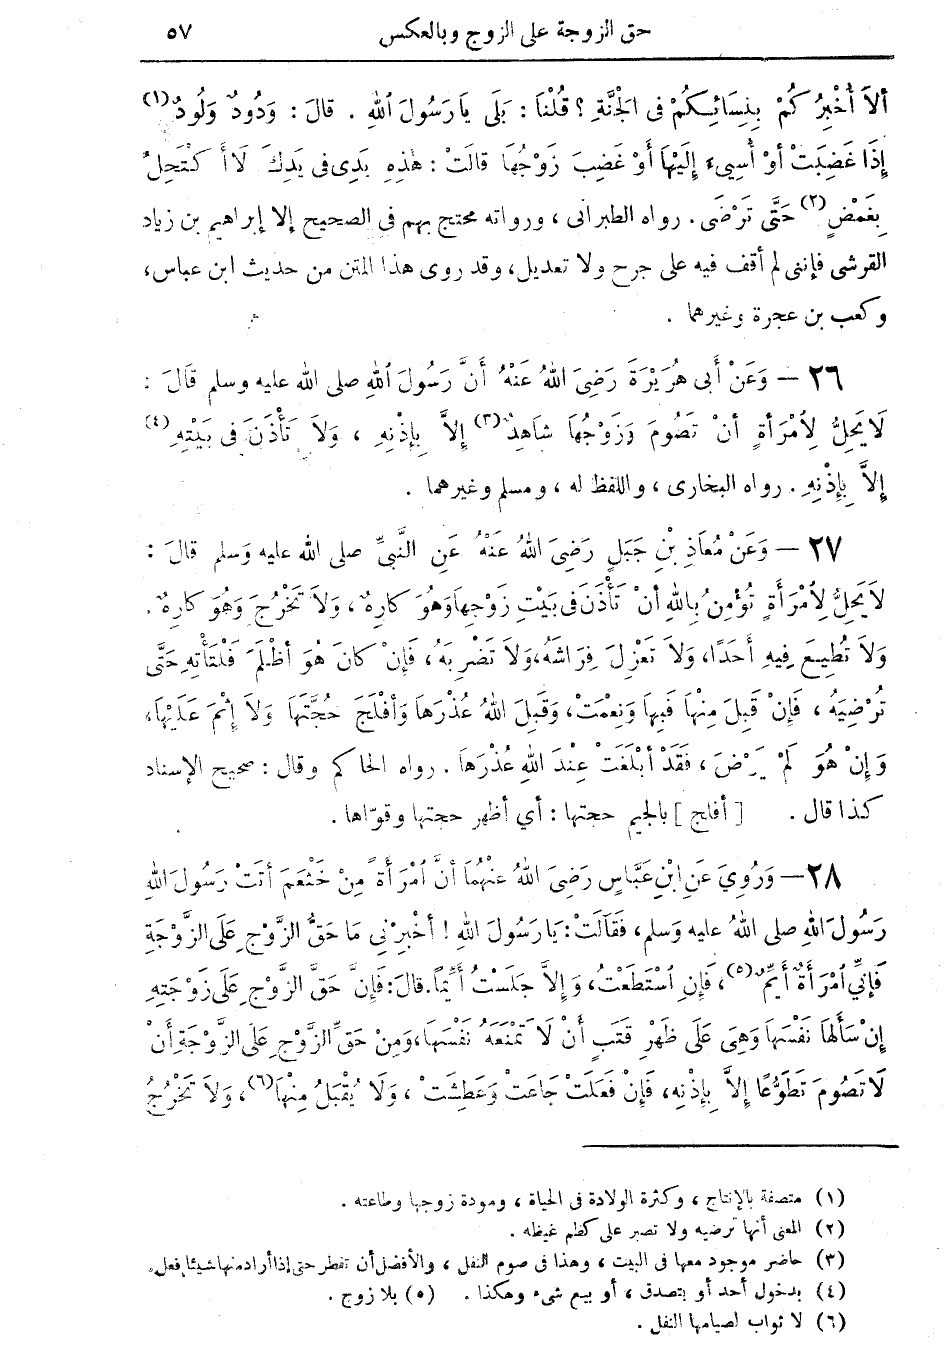 حق الزوجة على الزوج وبالعكس ٥٧
أَلاَ أُخْبِرُ كُمْ بِنِسَائِكُمْ فى الجَنَّةِ ؟ قُلْنَا : بَلَى يَا رَسُولَ اللهِ . قالَ : وَدُودٌ وَلُودٌ (١)
إِذَا غَضِبَتْ أَوْ أُسِىءَ إِلَيْهَا أَوْ غَضِبَ زَوْجُهَا قالَتْ : هٰذِهِ يَدِى فى يَدِكَ لاَ أَكْتَحِلُ
بِغَمْضٍ (٢) حَتَّى تَرْضَى . رواه الطبرانى ، ورواته محتج بهم فى الصحيح إلا إبراهيم بن زياد
القرشى فإننى لم أقف فيه على جرح ولا تعديل، وقد روى هذا المتن من حديث ابن عباس،
وكعب بن عجرة وغيرهما .
٢٦ — وَعَنْ أَبى هُرَيْرَةَ رَضِىَ اللهُ عَنْهُ أَنَّ رَسُولَ اللهِ صلى الله عليه وسلم قَالَ :
لاَ يَحِلُّ لِاُمْرَأَةٍ أَنْ تَصُومَ وَزَوْجُهَا شَاهِدٌ (٣) إِلاَّ بِإِذْنِهِ ، وَلاَ تَأْذَنَ فى بَيْتِهِ (٤)
إِلاَّ بِإِذْنِهِ . رواه البخارى ، واللفظ له ، ومسلم وغيرهما .
٢٧ — وَعَنْ مُعَاذِ بْنِ جَبَلٍ رَضِىَ اللهُ عَنْهُ عَنِ النَّبِىِّ صلى الله عليه وَسلم قالَ :
لاَ يَحِلُّ لِاُمْرَأَةٍ تُؤْمِنُ بِاللهِ أَنْ تَأْذَنَ فى بَيْتِ زَوْجِهَا وَهُوَ كارِهٌ ، وَلاَ تَخْرُجَ وَهُوَ كارِهٌ .
وَلاَ تُطِيعَ فِيهِ أَحَدًا، وَلاَ تَعْزِلَ فِرَاشَهُ، وَلاَ تَضْرِبَهُ ، فَإِنْ كانَ هُوَ أَظْلَمَ فَلْتَأْتِهِ حَتَّى
تُرْضِيَهُ ، فَإِنْ قَبِلَ مِنْهَا فَبِهَا وَنِعْمَتْ، وَقَبِلَ اللهُ عُذْرَهَا وَأَفْلَجَ حُجَّتَهَا وَلاَ إِثْمَ عَلَيْهَا،
وَإِنْ هُوَ لَمْ يَرْضَ ، فَقَدْ أَبْلَغَتْ عِنْدَ اللهِ عُذْرَهَا . رواه الحاكم وقال : صحيح الإسناد
كذا قال . [ أفلج ] بالجيم حجتها : أي أظهر حجتها وقوّاها .
٢٨ — وَرُوِيَ عَنِ ابْنِ عَبَّاسٍ رَضِىَ اللهُ عَنْهُمَا أَنَّ اُمْرَأَةً مِنْ خَثْعَمَ أَتَتْ رَسُولَ اللهِ
رَسُولَ اللهِ صلى اللهُ عليه وَسلم، فَقَالَتْ : يَا رَسُولَ اللهِ ! أَخْبِرْنِي مَا حَقُّ الزَّوْجِ عَلَى الزَّوْجَةِ
فَإِنِّي اُمْرَأَةٌ أَيِّمٌ (٥) ، فَإِنِ اُسْتَطَعْتُ، وَإِلاَّ جَلَسْتُ أَيِّمًا. قالَ : فَإِنَّ حَقَّ الزَّوْجِ عَلَى زَوْجَتِهِ
إِنْ سَأَلَهَا نَفْسَهَا وَهِىَ عَلَى ظَهْرِ قَتَبٍ أَنْ لاَ تَمْنَعَهُ نَفْسَهَا، وَمِنْ حَقِّ الزَّوْجِ عَلَى الزَّوْجَةِ أَنْ
لاَ تَصُومَ تَطَوُّعًا إِلاَّ بِإِذْنِهِ، فَإِنْ فَعَلَتْ جَاعَتْ وَعَطِشَتْ ، وَلاَ يُقْبَلُ مِنْهَا (٦) ، وَلاَ تَخْرُجُ
(١) متصفة بالإنتاج ، وكثرة الولادة فى الحياة ، ومودة زوجها وطاعته .
(٢) المعنى أنها ترضيه ولا تصبر على كظم غيظه .
(٣) حاضر موجود معها فى البيت ، وهذا فى صوم النفل ، والأفضل أن تفطر حتى إذا أراد منها شيئا فعل.
(٤) بدخول أحد أو بتصدق ، أو بيع شىء وهكذا . (٥) بلا زوج .
(٦) لا ثواب لصيامها النفل .